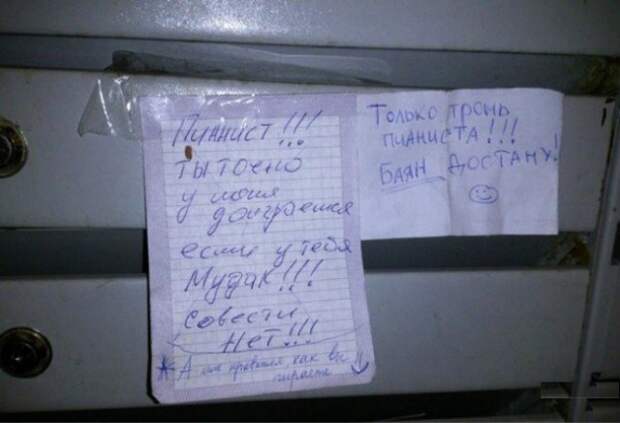 Пианист!!!
ты точно
у меня
доиграешся
если у тебя
Мудак!!!
совести
Нет!!!
* А мне нравится, как вы
играете
Только тронь
пианиста!!!
Баян достану!